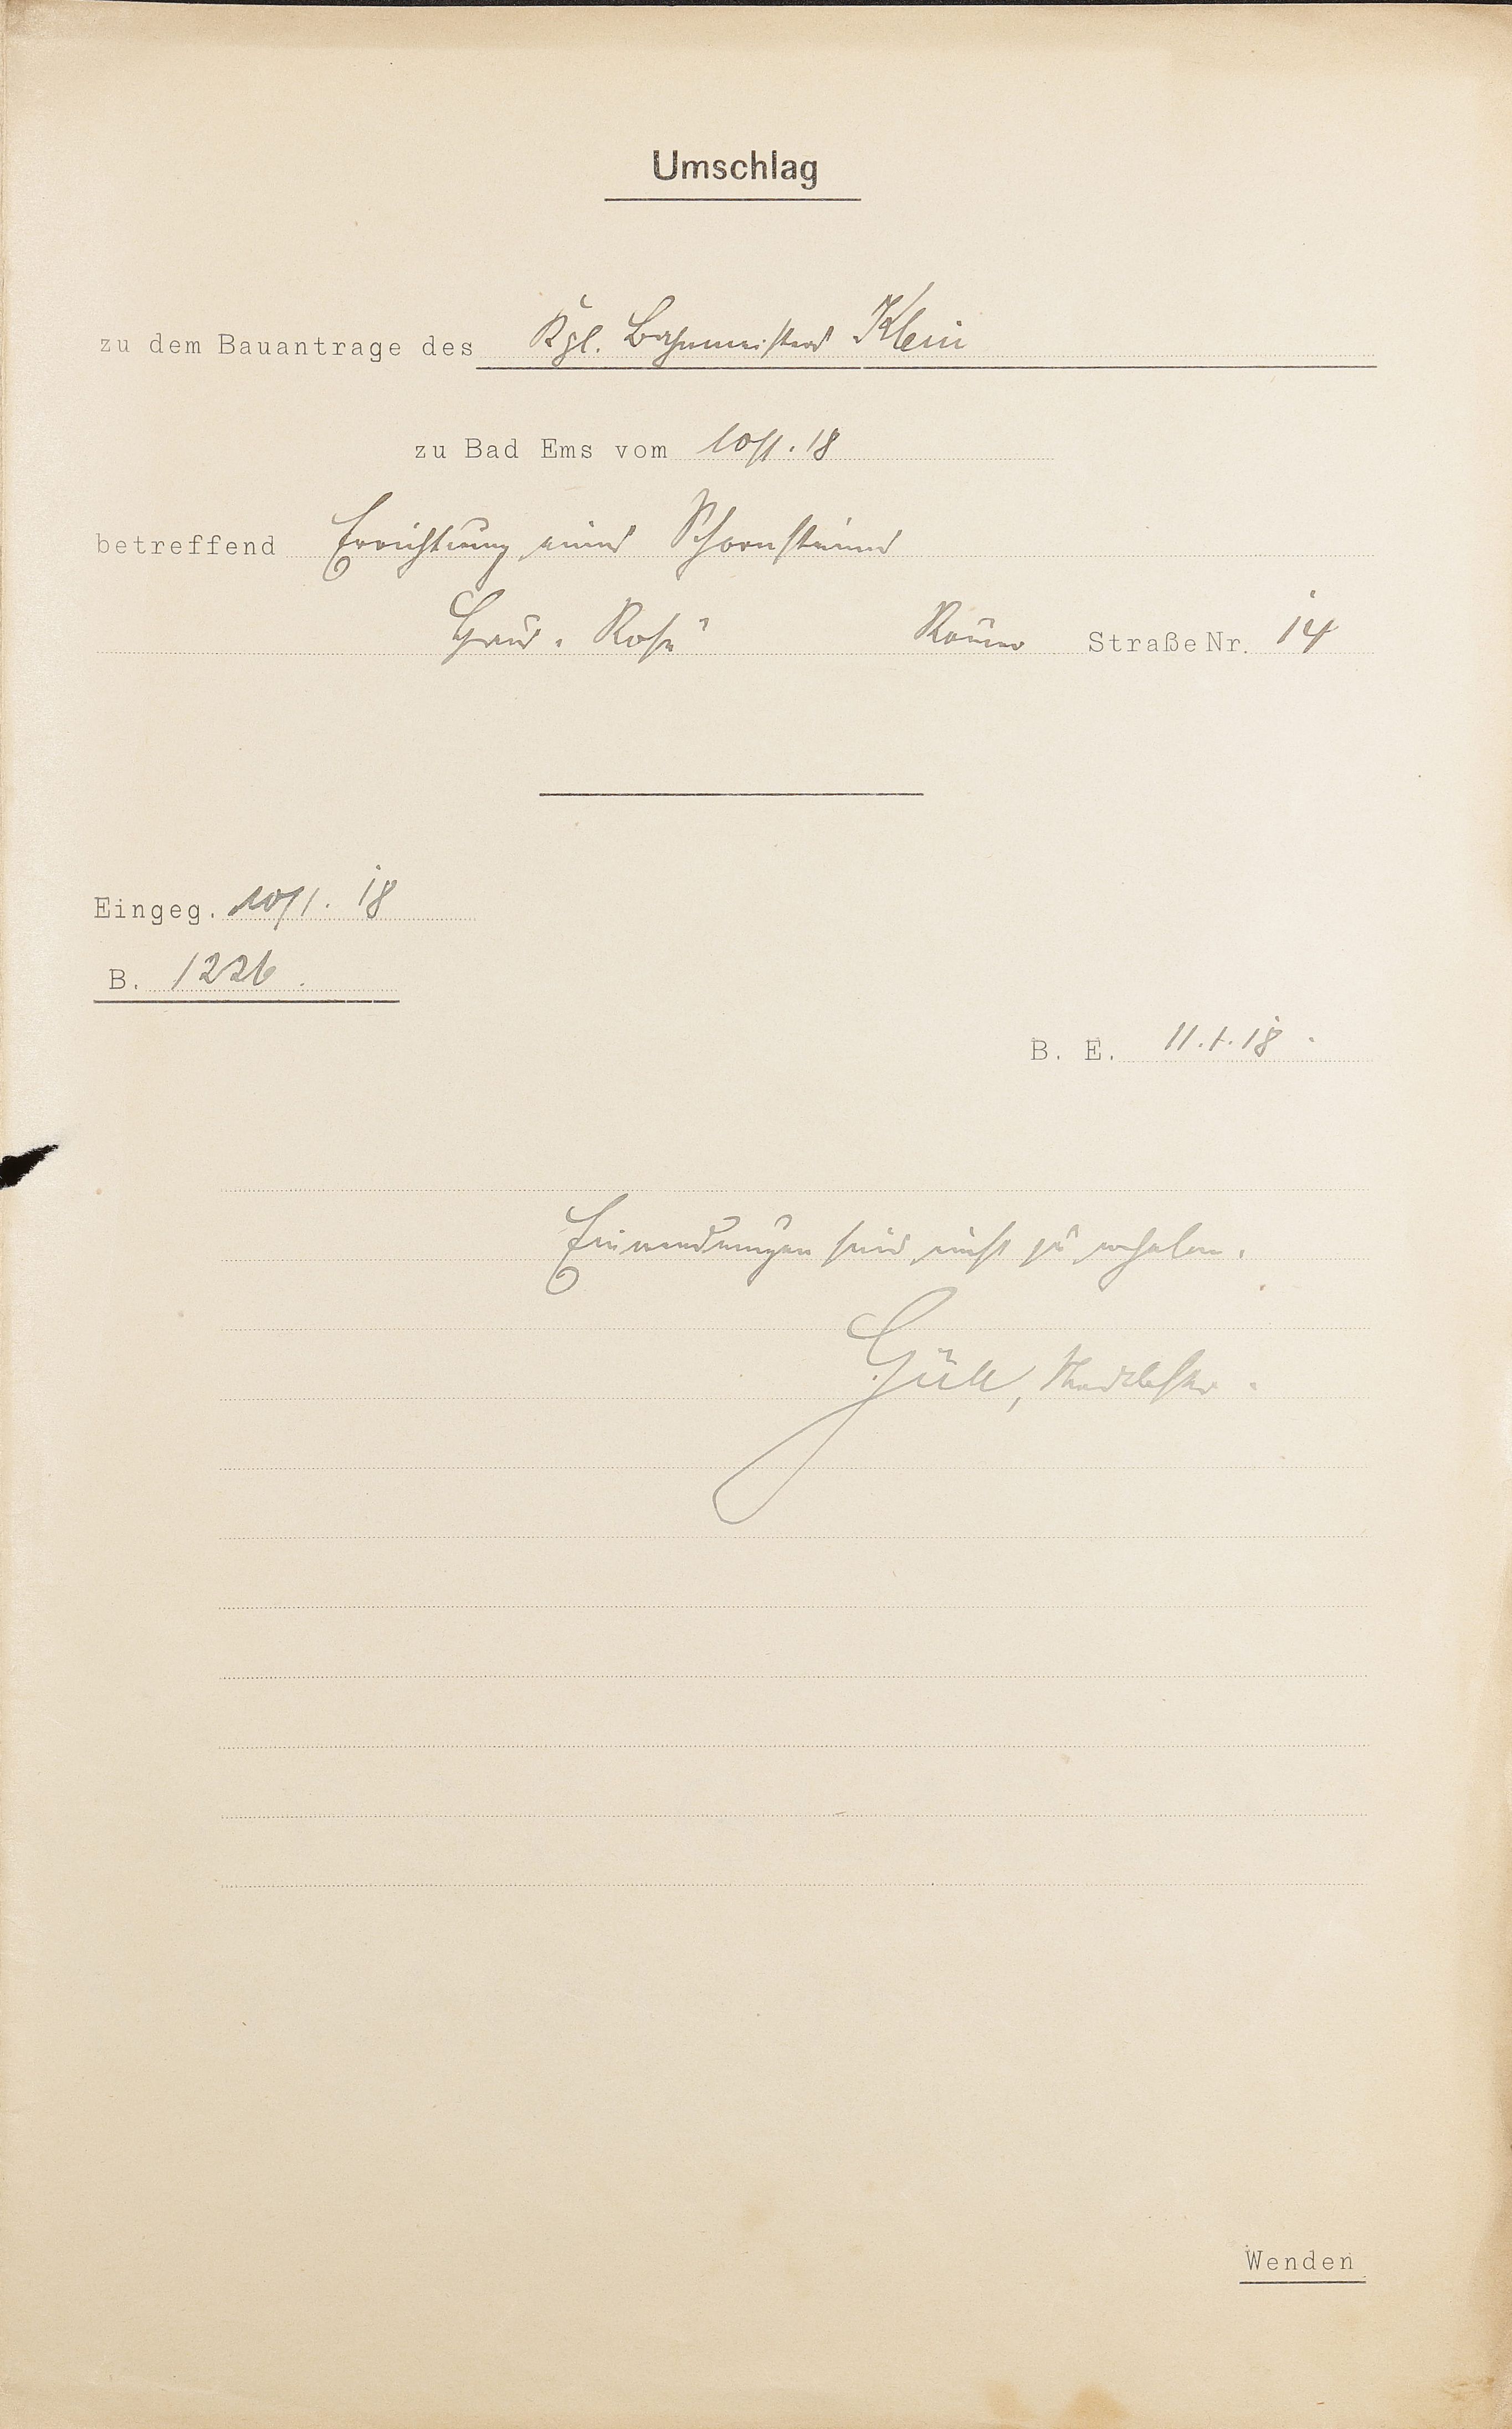 Umschlag
zu dem Bauantrage des Kgl. Bahnmeisters Klein
zu Bad Ems vom 10/1.18
betreffend Errichtung eines Schornsteines
Haus „Rose" Römer Straße Nr. 14
Eingeg. 10/1. 18
B. 1226.
B. E. 11.1.18.
Einwendungen sind nicht zu erheben.
Wenden